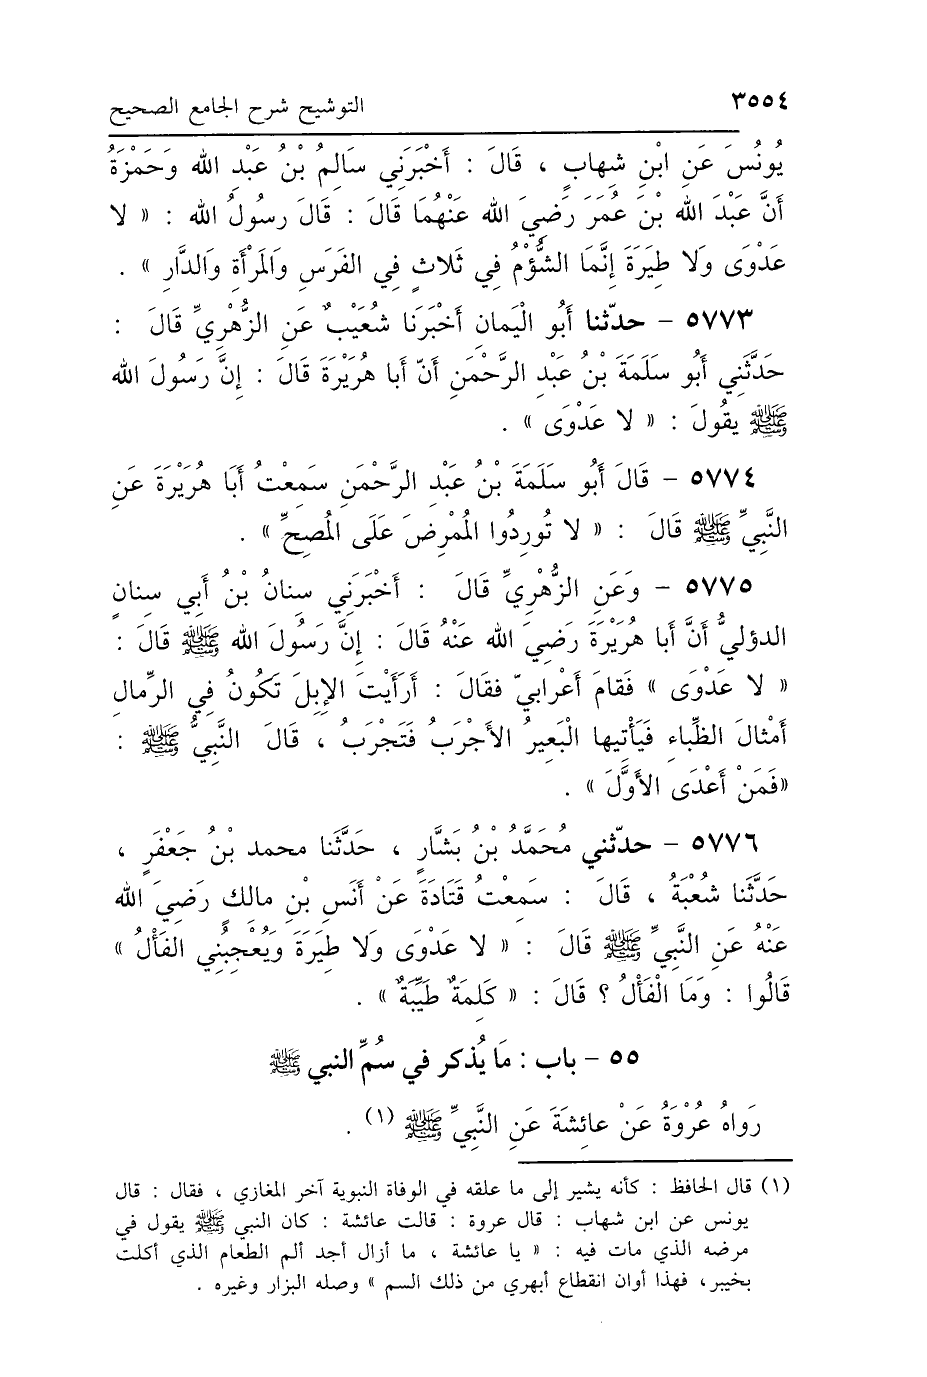 ٣٥٥٤ التوشيح شرح الجامع الصحيح
يُونُسَ عَنِ ابْنِ شهابٍ ، قَالَ : أَخْبَرَني سَالِمُ بْنُ عَبْدِ الله وَحَمْزَةُ
أَنَّ عَبْدَ الله بْنَ عُمَرَ رَضِيَ الله عَنْهُمَا قَالَ : قَالَ رسُولُ الله : « لا
عَدْوَى وَلا طِيَرَةَ إِنَّمَا الشُّؤْمُ فِي ثَلاثٍ فِي الفَرَسِ وَالمَرْأَةِ وَالدَّارِ » .
٥٧٧٣ - حدثنا أَبُو الْيَمانِ أَخْبَرَنَا شُعَيْبٌ عَنِ الزُّهْرِيِّ قَالَ :
حَدَّثَنِي أَبُو سَلَمَةَ بْنُ عَبْدِ الرَّحْمَنِ أَنّ أَبا هُرَيْرَةَ قَالَ : إِنَّ رَسُولَ الله
ﷺ يقُولَ : « لا عَدْوَى » .
٥٧٧٤ - قَالَ أَبُو سَلَمَةَ بْنُ عَبْدِ الرَّحْمَنِ سَمِعْتُ أَبَا هُرَيْرَةَ عَنِ
النَّبِيِّ ﷺ قَالَ : « لا تُورِدُوا الْمُمْرِضَ عَلَى الْمُصِحِّ » .
٥٧٧٥ - وَعَنِ الزُّهْرِيِّ قَالَ : أَخْبَرَنِي سِنانُ بْنُ أَبِي سِنانٍ
الدؤليُّ أَنَّ أَبا هُرَيْرَةَ رَضِيَ الله عَنْهُ قَالَ : إِنَّ رَسُولَ الله ﷺ قَالَ :
« لا عَدْوَى » فَقامَ أَعْرابيّ فقَالَ : أَرَأَيْتَ الإِبلَ تَكُونُ فِي الرِّمالِ
أَمْثالَ الظِّباءِ فَيَأْتِيها الْبَعِيرُ الأَجْرَبُ فَتَجْرَبُ ، قَالَ النَّبيُّ ﷺ :
«فَمَنْ أَعْدَى الأَوَّلَ » .
٥٧٧٦ - حدّثني مُحَمَّدُ بْنُ بَشَّارٍ ، حَدَّثَنا محمد بنُ جَعْفَرٍ ،
حَدَّثَنا شُعْبَةُ ، قَالَ : سَمِعتُ قَتَادَةَ عَنْ أَنَسِ بْنِ مالِكٍ رَضِيَ الله
عَنْهُ عَنِ النَّبيِّ ﷺ قَالَ : « لا عَدْوَى وَلا طِيَرَةَ وَيُعْجِبُنِي الفَأْلُ »
قَالُوا : وَمَا الْفَأْلُ ؟ قَالَ : « كَلِمَةٌ طَيِّبَةٌ » .
٥٥ - باب : مَا يُذكر في سُمِّ النبي ﷺ
رَواهُ عُرْوَةُ عَنْ عائِشَةَ عَنِ النَّبيِّ ﷺ (١) .
(١) قال الحافظ : كأنه يشير إلى ما علقه في الوفاة النبوية آخر المغازي ، فقال : قال
يونس عن ابن شهاب : قال عروة : قالت عائشة : كان النبي ﷺ يقول في
مرضه الذي مات فيه : « يا عائشة ، ما أزال أجد ألم الطعام الذي أكلت
بخيبر، فهذا أوان انقطاع أبهري من ذلك السم » وصله البزار وغيره .